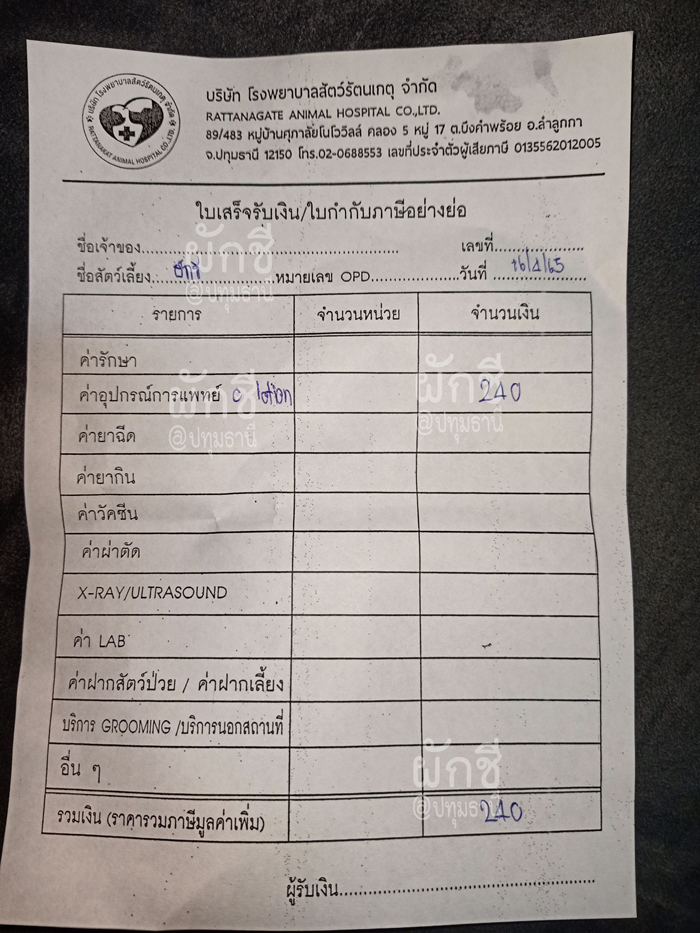 บริษัท โรงพยาบาลสัตว์รัตนเกตุ จำกัด
RATTANAGATE ANIMAL HOSPITAL CO.,LTD.
89/483 หมู่บ้านศุภาลัยโนโววิลล์ คลอง 5 หมู่ 17 ต.บึงคำพร้อย อ.ลำลูกกา
จ.ปทุมธานี 12150 โทร.02-0688553 เลขที่ประจำตัวผู้เสียภาษี 0135562012005
บริษัท โรงพยาบาลสัตว์รัตนเกตุ จำกัด
RATTANAKAT ANIMAL HOSPITAL CO.,LTD.
ใบเสร็จรับเงิน/ใบกำกับภาษีอย่างย่อ
ชื่อเจ้าของ เลขที่
ชื่อสัตว์เลี้ยง ผักชี หมายเลข OPD วันที่ 16/1/65
ผักชี
@ปทุมธานี
รายการ จำนวนหน่วย จำนวนเงิน
ค่ารักษา
ค่าอุปกรณ์การแพทย์ lotion 240
ผักชี ผักชี
@ปทุมธานี @ปทุมธานี
ค่ายาฉีด
ค่ายากิน
ค่าวัคซีน
ค่าผ่าตัด
X-RAY/ULTRASOUND
ค่า LAB
ค่าฝากสัตว์ป่วย / ค่าฝากเลี้ยง
บริการ GROOMING /บริการนอกสถานที่
อื่น ๆ
ผักชี
@ปทุมธานี
รวมเงิน (ราคารวมภาษีมูลค่าเพิ่ม) 240
ผู้รับเงิน